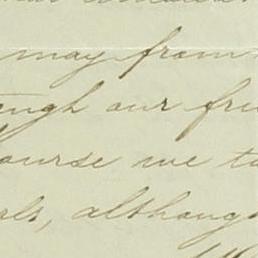 may from
ough our fri
ourse we to
als, although